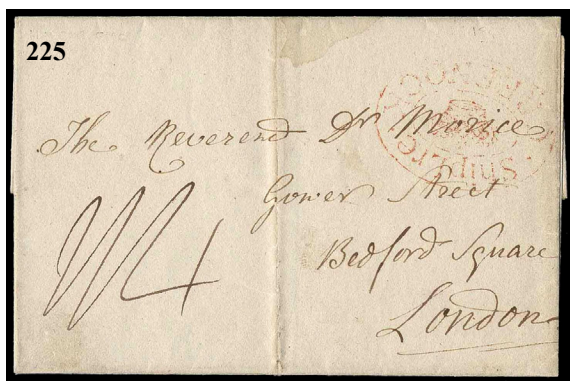 225
The Reverend Dr Morice
Gower Street
Bedford Square
London